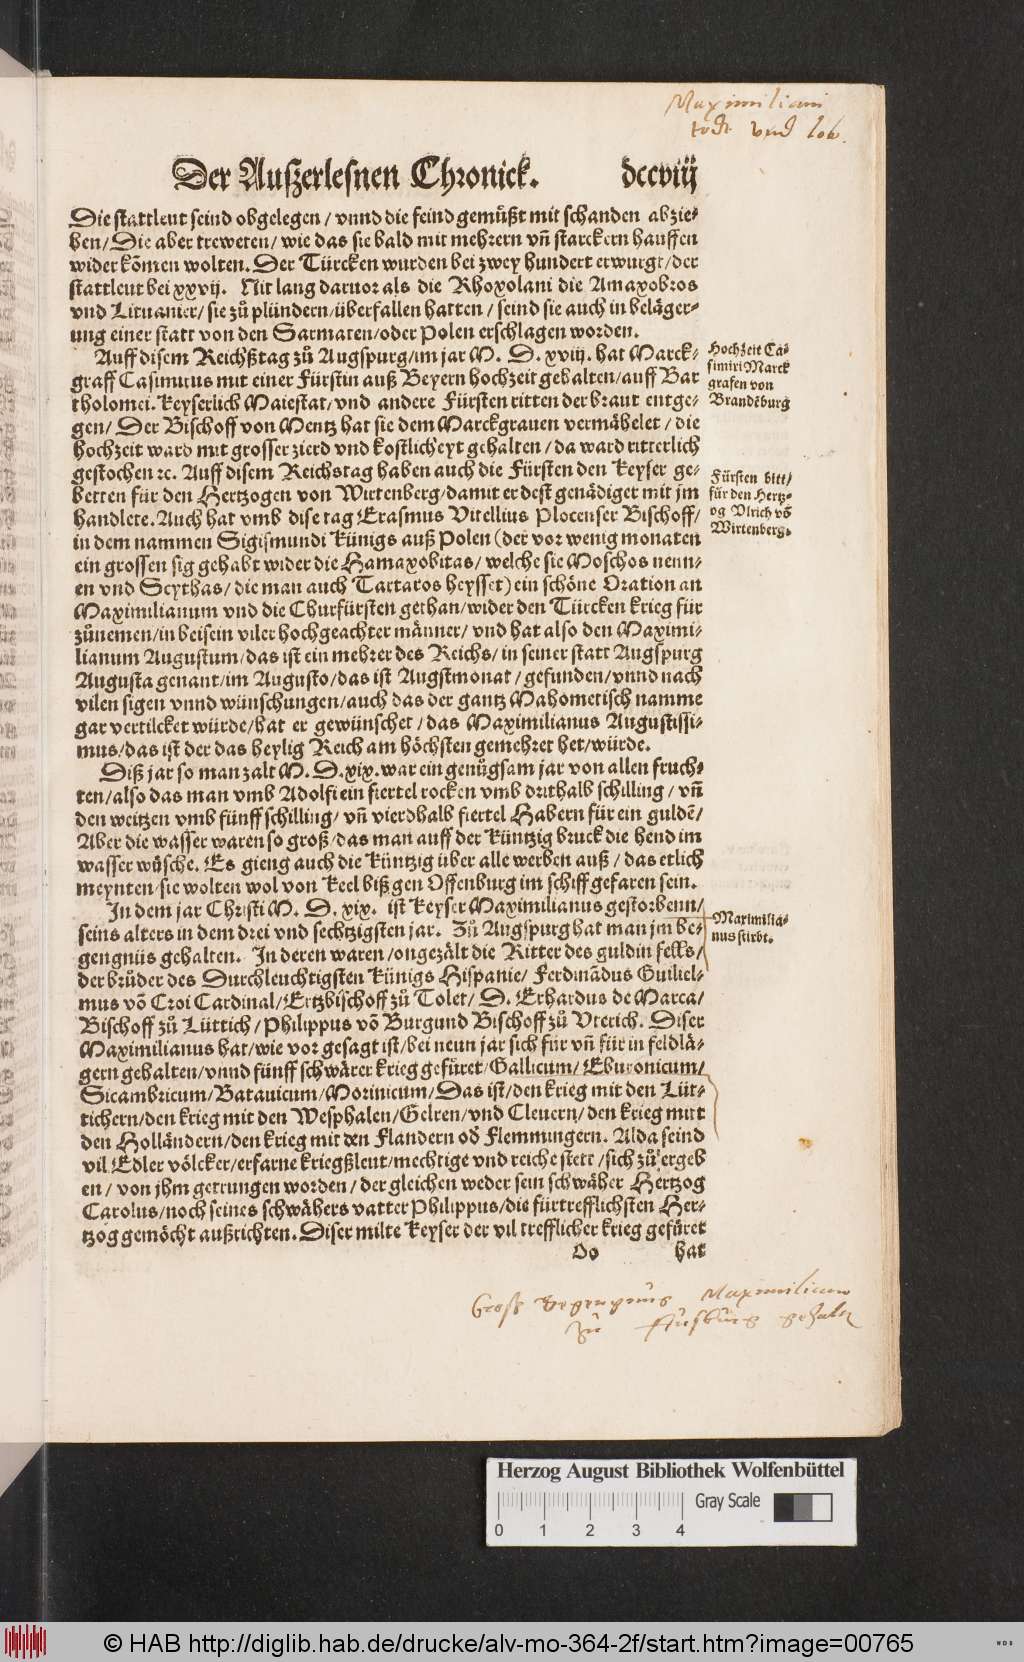 Maximiliani
todt vnd lob.
Der Außerlesnen Chronick. dccviij
Die stattleut seind obgelegen / vnnd die feind gemůßt mit schanden abzie⸗
hen / Die aber treweten / wie das sie bald mit mehrern vñ starckern hauffen
wider kõmen wolten. Der Türcken wurden bei zwey hundert erwurgt / der
stattleut bei xxvij. Nit lang daruor als die Rhoxolani die Amaxobros
vnd Lituanier / sie zů plündern / überfallen hatten / seind sie auch in beläger⸗
ung einer statt von den Sarmaten / oder Polen erschlagen worden.
Auff disem Reichßtag zů Augspurg / im jar M. D. xviij. hat Marck⸗
graff Casimirus mit einer Fürstin auß Beyern hochzeit gehalten / auff Bar
tholomei. Keyserlich Maiestat / vnd andere Fürsten ritten der braut entge⸗
gen / Der Bischoff von Mentz hat sie dem Marckgrauen vermähelet / die
hochzeit ward mit grosser zierd vnd kostlicheyt gehalten / da ward ritterlich
gestochen ꝛc. Auff disem Reichstag haben auch die Fürsten den Keyser ge⸗
betten für den Hertzogen von Wirtenberg / damit er dest genädiger mit jm
handlete. Auch hat vmb dise tag Erasmus Vitellius Plocenser Bischoff /
in dem nammen Sigismundi Künigs auß Polen (der vor wenig monaten
ein grossen sig gehabt wider die Hamaxobitas / welche sie Moschos nenn⸗
en vnd Scythas / die man auch Tartaros heysset) ein schöne Oration an
Maximilianum vnd die Churfürsten gethan / wider den Türcken krieg für
zůnemen / in beisein viler hochgeachter männer / vnd hat also den Maximi⸗
lianum Augustum / das ist ein mehrer des Reichs / in seiner statt Augspurg
Augusta genant / im Augusto / das ist Augstmonat / gefunden / vnnd nach
vilen sigen vnnd wünschungen / auch das der gantz Mahometisch namme
gar vertilcket würde / hat er gewünschet / das Maximilianus Augustissi⸗
mus / das ist der das heylig Reich am höchsten gemehret het / würde.
Diß jar so man zalt M. D. xix. war ein genůgsam jar von allen fruch⸗
ten / also das man vmb Adolfi ein fiertel rocken vmb drithalb schilling / vñ
den weitzen vmb fünff schilling / vñ vierdhalb fiertel Habern für ein guldẽ /
Aber die wasser waren so groß / das man auff der Küntzig bruck die hend im
wasser wůsche. Es gieng auch die Küntzig über alle werben auß / das etlich
meynten / sie wolten wol von Keel biß gen Offenburg im schiff gefaren sein.
In dem jar Christi M. D. xix. ist Keyser Maximilianus gestorbenn /
seins alters in dem drei vnd sechtzigsten jar. Zů Augspurg hat man jm be⸗
gengnüs gehalten. In deren waren / ongezält die Ritter des guldin fells /
der brůder des Durchleuchtigsten Künigs Hispanie / Ferdinãdus Guiliel⸗
mus võ Croi Cardinal / Ertzbischoff zů Tolet / D. Erhardus de Marca /
Bischoff zů Lüttich / Philippus võ Burgund Bischoff zů Vterich. Diser
Maximilianus hat / wie vor gesagt ist / bei neun jar sich für vñ für in feldlä⸗
gern gehalten / vnnd fünff schwärer krieg gefüret / Gallicum / Eburonicum /
Sicambricum / Batauicum / Morinicum / Das ist / den krieg mit den Lüt⸗
tichern / den krieg mit den Wesphalen / Gelren / vnd Cleuern / den krieg mitt
den Holländern / den krieg mit den Flandern od Flemmingern. Alda seind
vil Edler völcker / erfarne kriegßleut / mechtige vnd reiche stett / sich zů ergeb
en / von jhm getrungen worden / der gleichen weder sein schwäher Hertzog
Carolus / noch seines schwähers vatter Philippus / die fürtrefflichsten Her⸗
tzog gemöcht außrichten. Diser milte Keyser der vil trefflicher krieg gefüret
Oo hat
Hochzeit Ca⸗
simiri Marck
grafen von
Brandẽburg
Fürsten bitt /
für den Hertz⸗
og Vlrich võ
Wirtenberg.
Maximilia⸗
nus stirbt.
Groß Begengnüs Maximiliano
zu Ausburg gehaltẽ
Herzog August Bibliothek Wolfenbüttel
Gray Scale
0 1 2 3 4
© HAB http://diglib.hab.de/drucke/alv-mo-364-2f/start.htm?image=00765